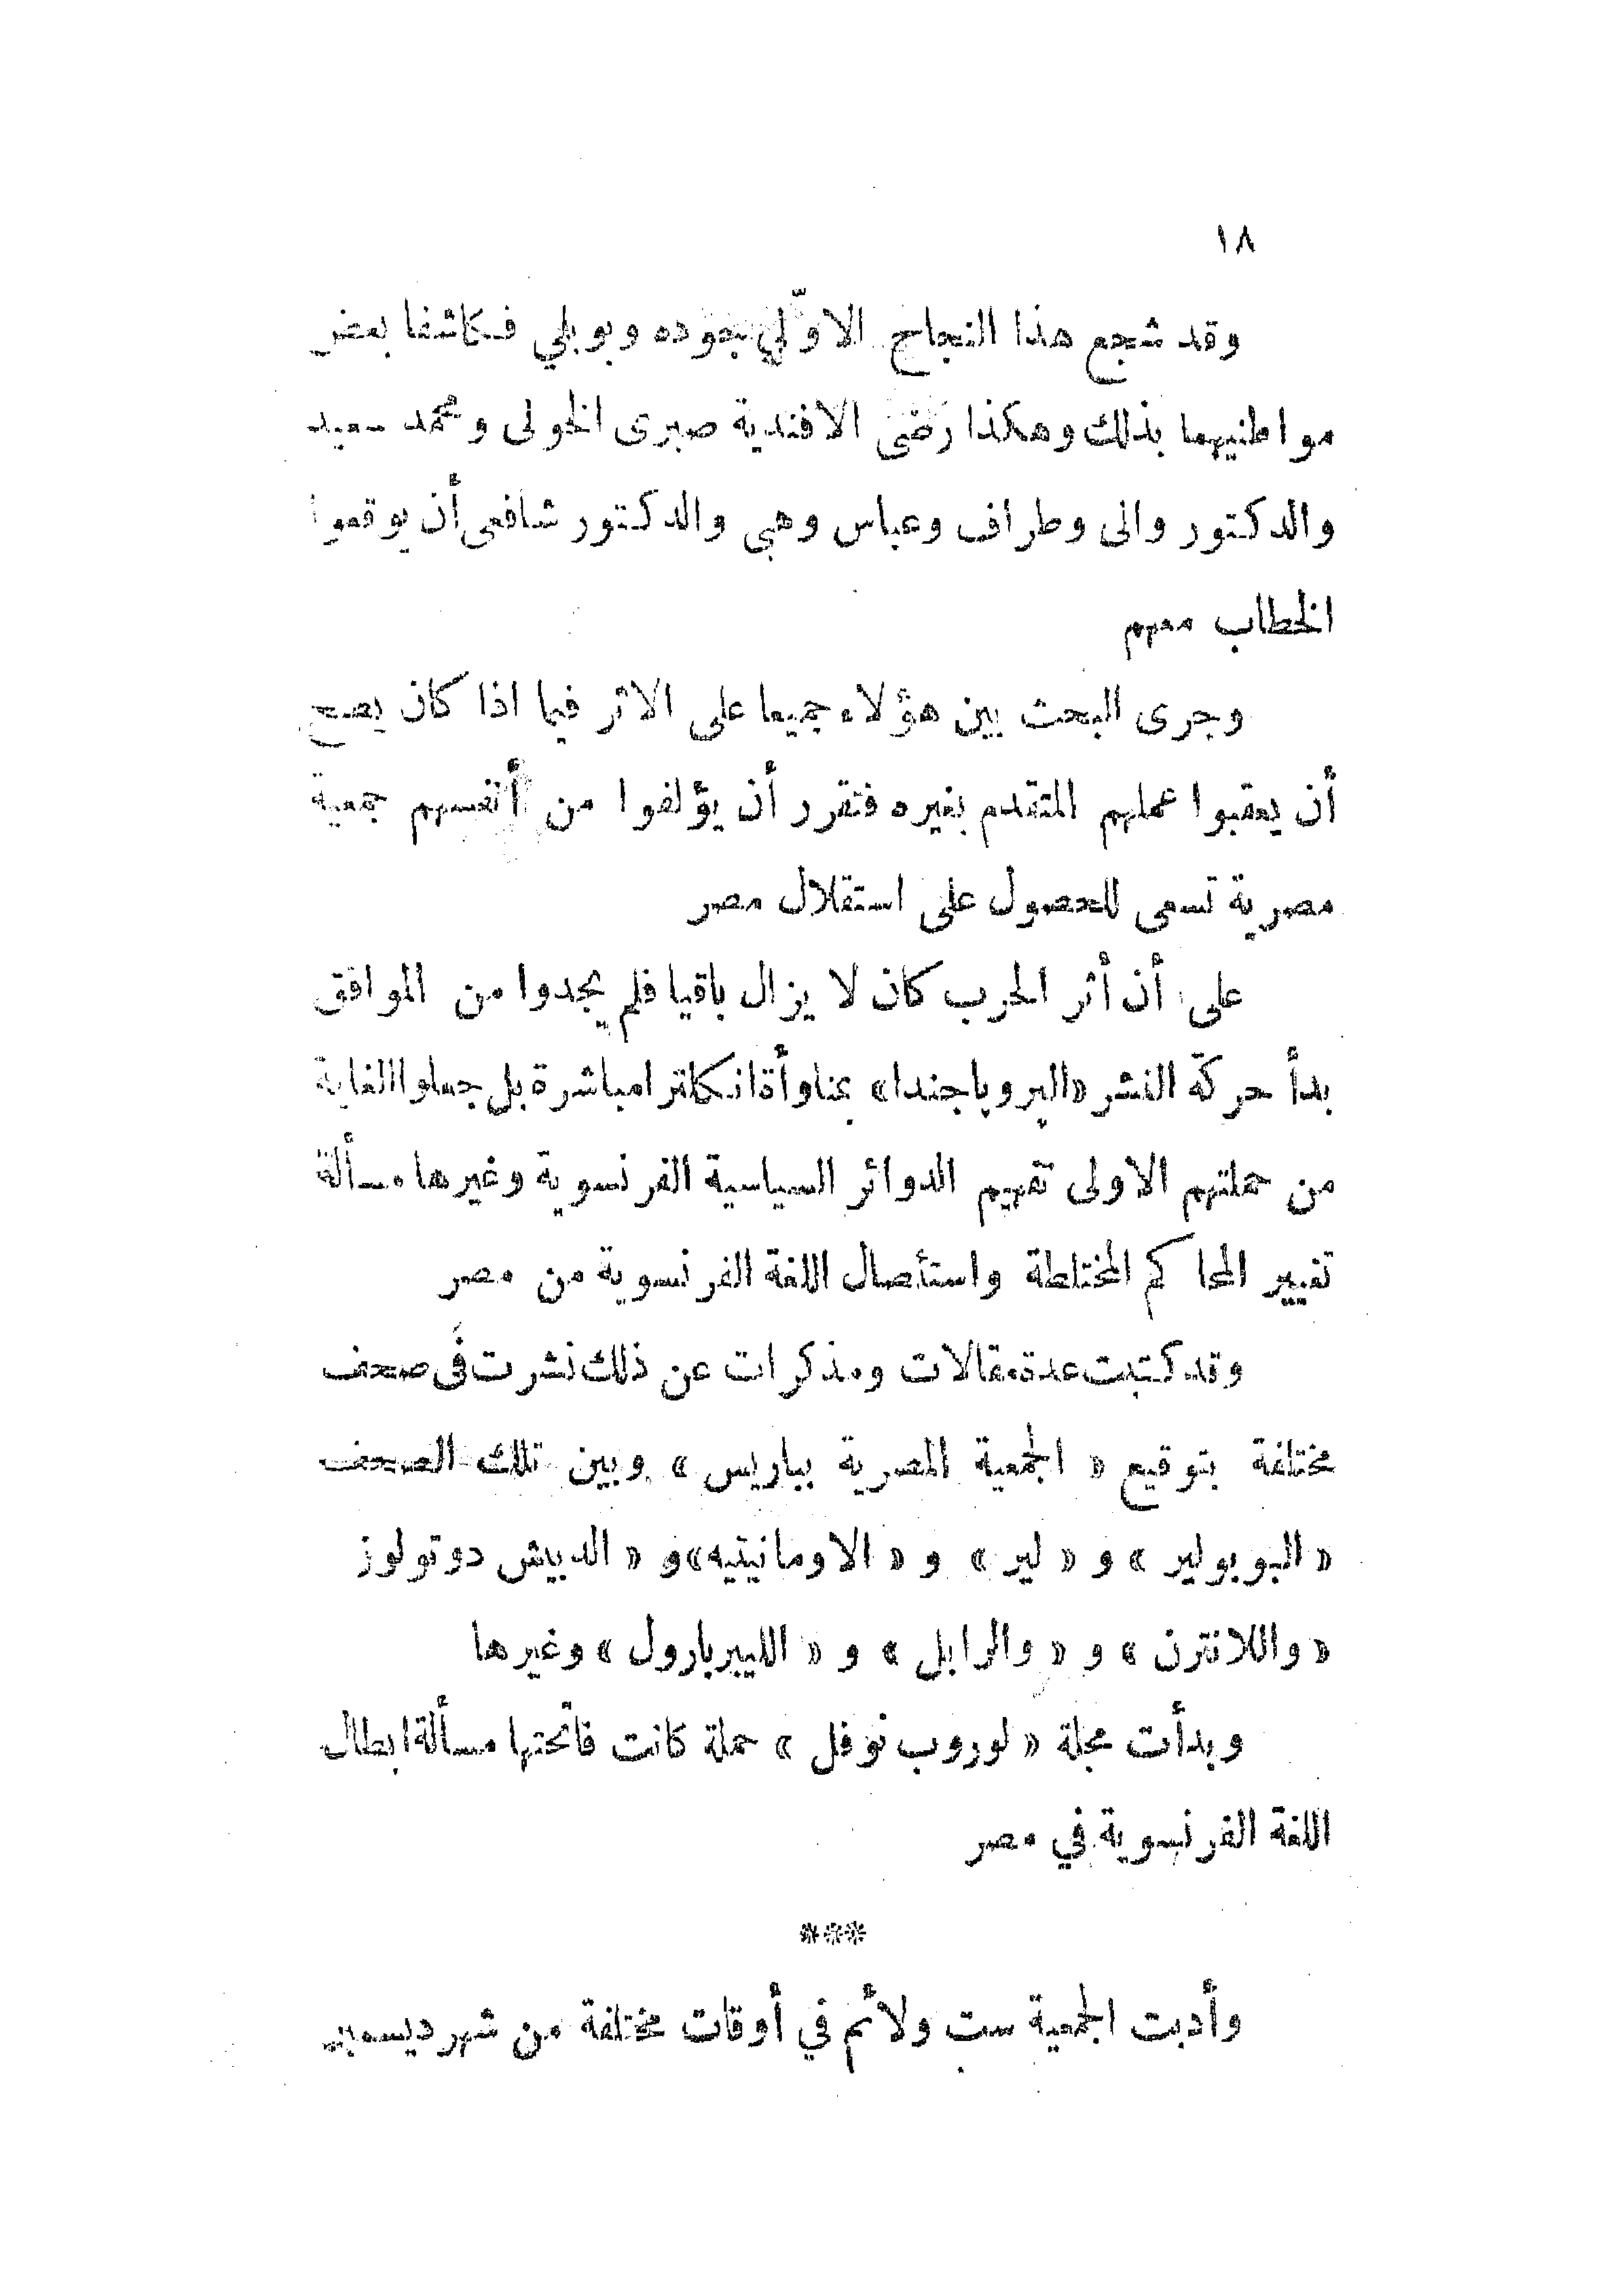 ١٨
وقد شجع هذا النجاح الاوّلي جوده وبوبلي فكاشفا بعض
مواطنيهما بذلك وهكذا رضى الافندية صبرى الخولى ومحمد سعيد
والدكتور والى وطراف وعباس وهبي والدكتور شافعى أن يوقعوا
الخطاب معهم
وجرى البحث بين هؤلاء جميعا على الاثر فيما اذا كان يصح
أن يعقبوا عملهم المتقدم بغيره فتقرر أن يؤلفوا من أنفسهم جمعية
مصرية تسعى للحصول على استقلال مصر
على أن أثر الحرب كان لا يزال باقيا فلم يجدوا من الموافق
بدأ حركة النشر «البروباجندا» بمناوأة انكلترا مباشرة بل جعلوا الغاية
من حملتهم الاولى تفهيم الدوائر السياسية الفرنسوية وغيرها مسألة
تغيير المحاكم المختلطة واستئصال اللغة الفرنسوية من مصر
وقد كتبت عدة مقالات ومذكرات عن ذلك نشرت فى صحف
مختلفة بتوقيع « الجمعية المصرية بباريس » وبين تلك الصحف
« البوبولير » و « لير » و « الاومانيتيه» و « الدبيش دوتولوز
« واللانترن » و « والرابل » و « الليبربارول » وغيرها
وبدأت مجلة « لوروب نوفل » حملة كانت فاتحتها مسألة ابطال
اللغة الفرنسوية في مصر
***
وأدبت الجمعية ست ولائم في أوقات مختلفة من شهر ديسمبر